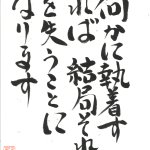 何かに執着す
れば 結局それ
を失うことに
なります